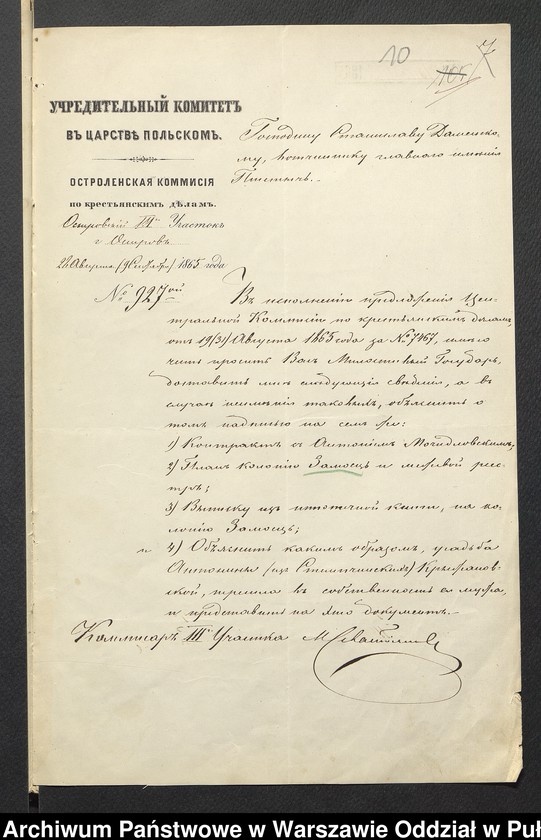 10
7
105
УЧРЕДИТЕЛЬНЫЙ КОМИТЕТЪ
ВЪ ЦАРСТВѢ ПОЛЬСКОМЪ.
ОСТРОЛЕНСКАЯ КОММИСІЯ
по крестьянскимъ дѣламъ.
Островскій III Участокъ
г. Островъ
1865 года
№ 927ой
Господину Станиславу
му, вотчиннику главного имѣнія
Въ исполненіи предложенія Цен-
тральной Коммисіи по крестьянскимъ дѣламъ,
отъ 19(31) Августа 1865 года за № 7467, имѣю
честь просить Васъ Милостивый Государь,
доставить мнѣ слѣдующія свѣдѣнія, а въ
случаѣ неимѣнія таковыхъ, объяснить о
томъ надписью на семъ же:
1) Контрактъ съ Антоніемъ
2) Планъ колоніи Замосць и мѣровой рее-
стръ;
3) Выписку изъ ипотечной книги, на ко-
лонію Замосць;
4) Объяснить какимъ образомъ, усадьба
Антонины (изъ
ской, пришла въ собственность ея мужа,
и представить на это документъ.
Коммисаръ III Участка
Archiwum Państwowe w Warszawie Oddział w Puł